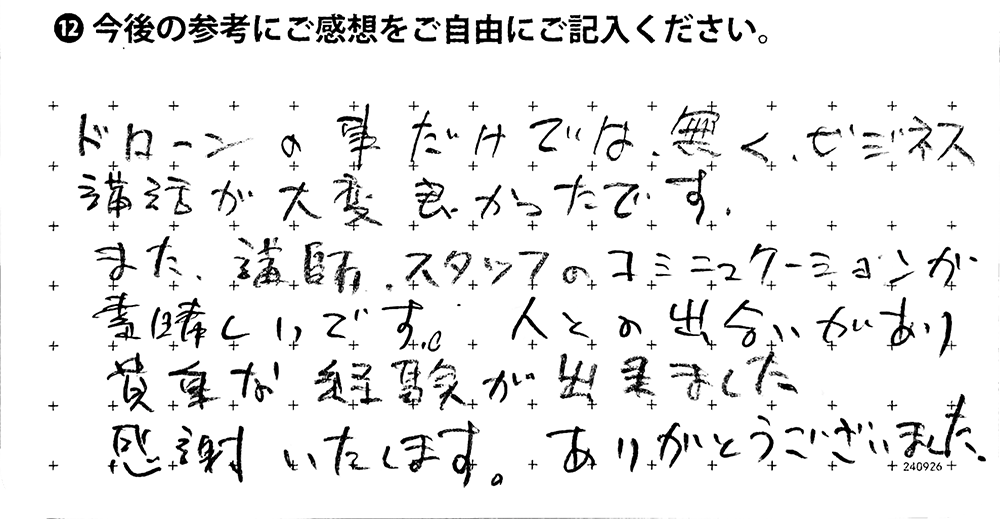 ⓬ 今後の参考にご感想をご自由にご記入ください。
ドローンの事だけでは、無く、ビジネス
講話が大変良かったです。
また、講師、スタッフのコミニュケーションが
素晴しいです。人との出合いがあり
貴重な経験が出来ました
感謝いたします。ありがとうございました
240926